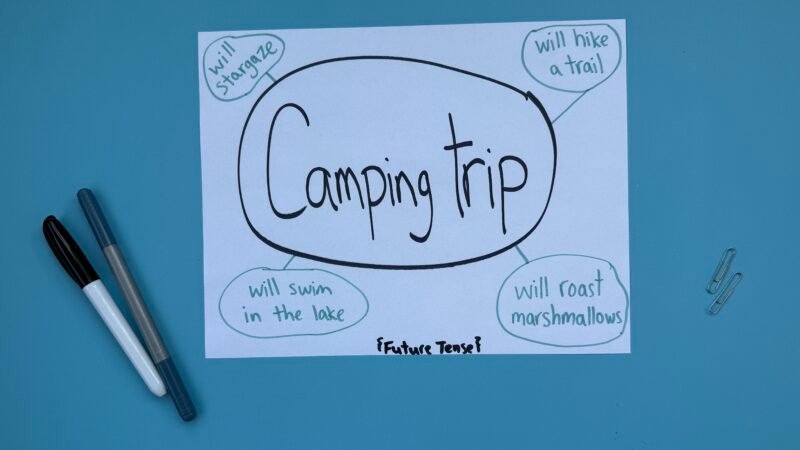 will
stargaze
will hike
a trail
Camping trip
will swim
in the lake
will roast
marshmallows
{Future Tense}